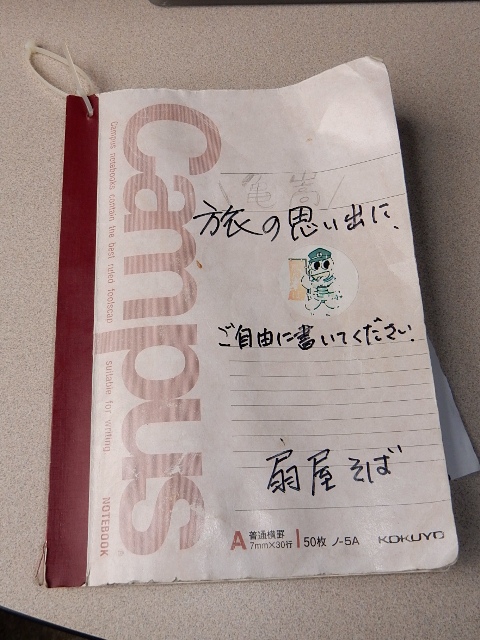 Campus
Campus notebooks contain the best ruled foolscap suitable for writing
NOTEBOOK
亀嵩
旅の思い出に、
ご自由に書いてください.
扇屋そば
A 普通横罫 7mm×30行 50枚 ノ-5A KOKUYO